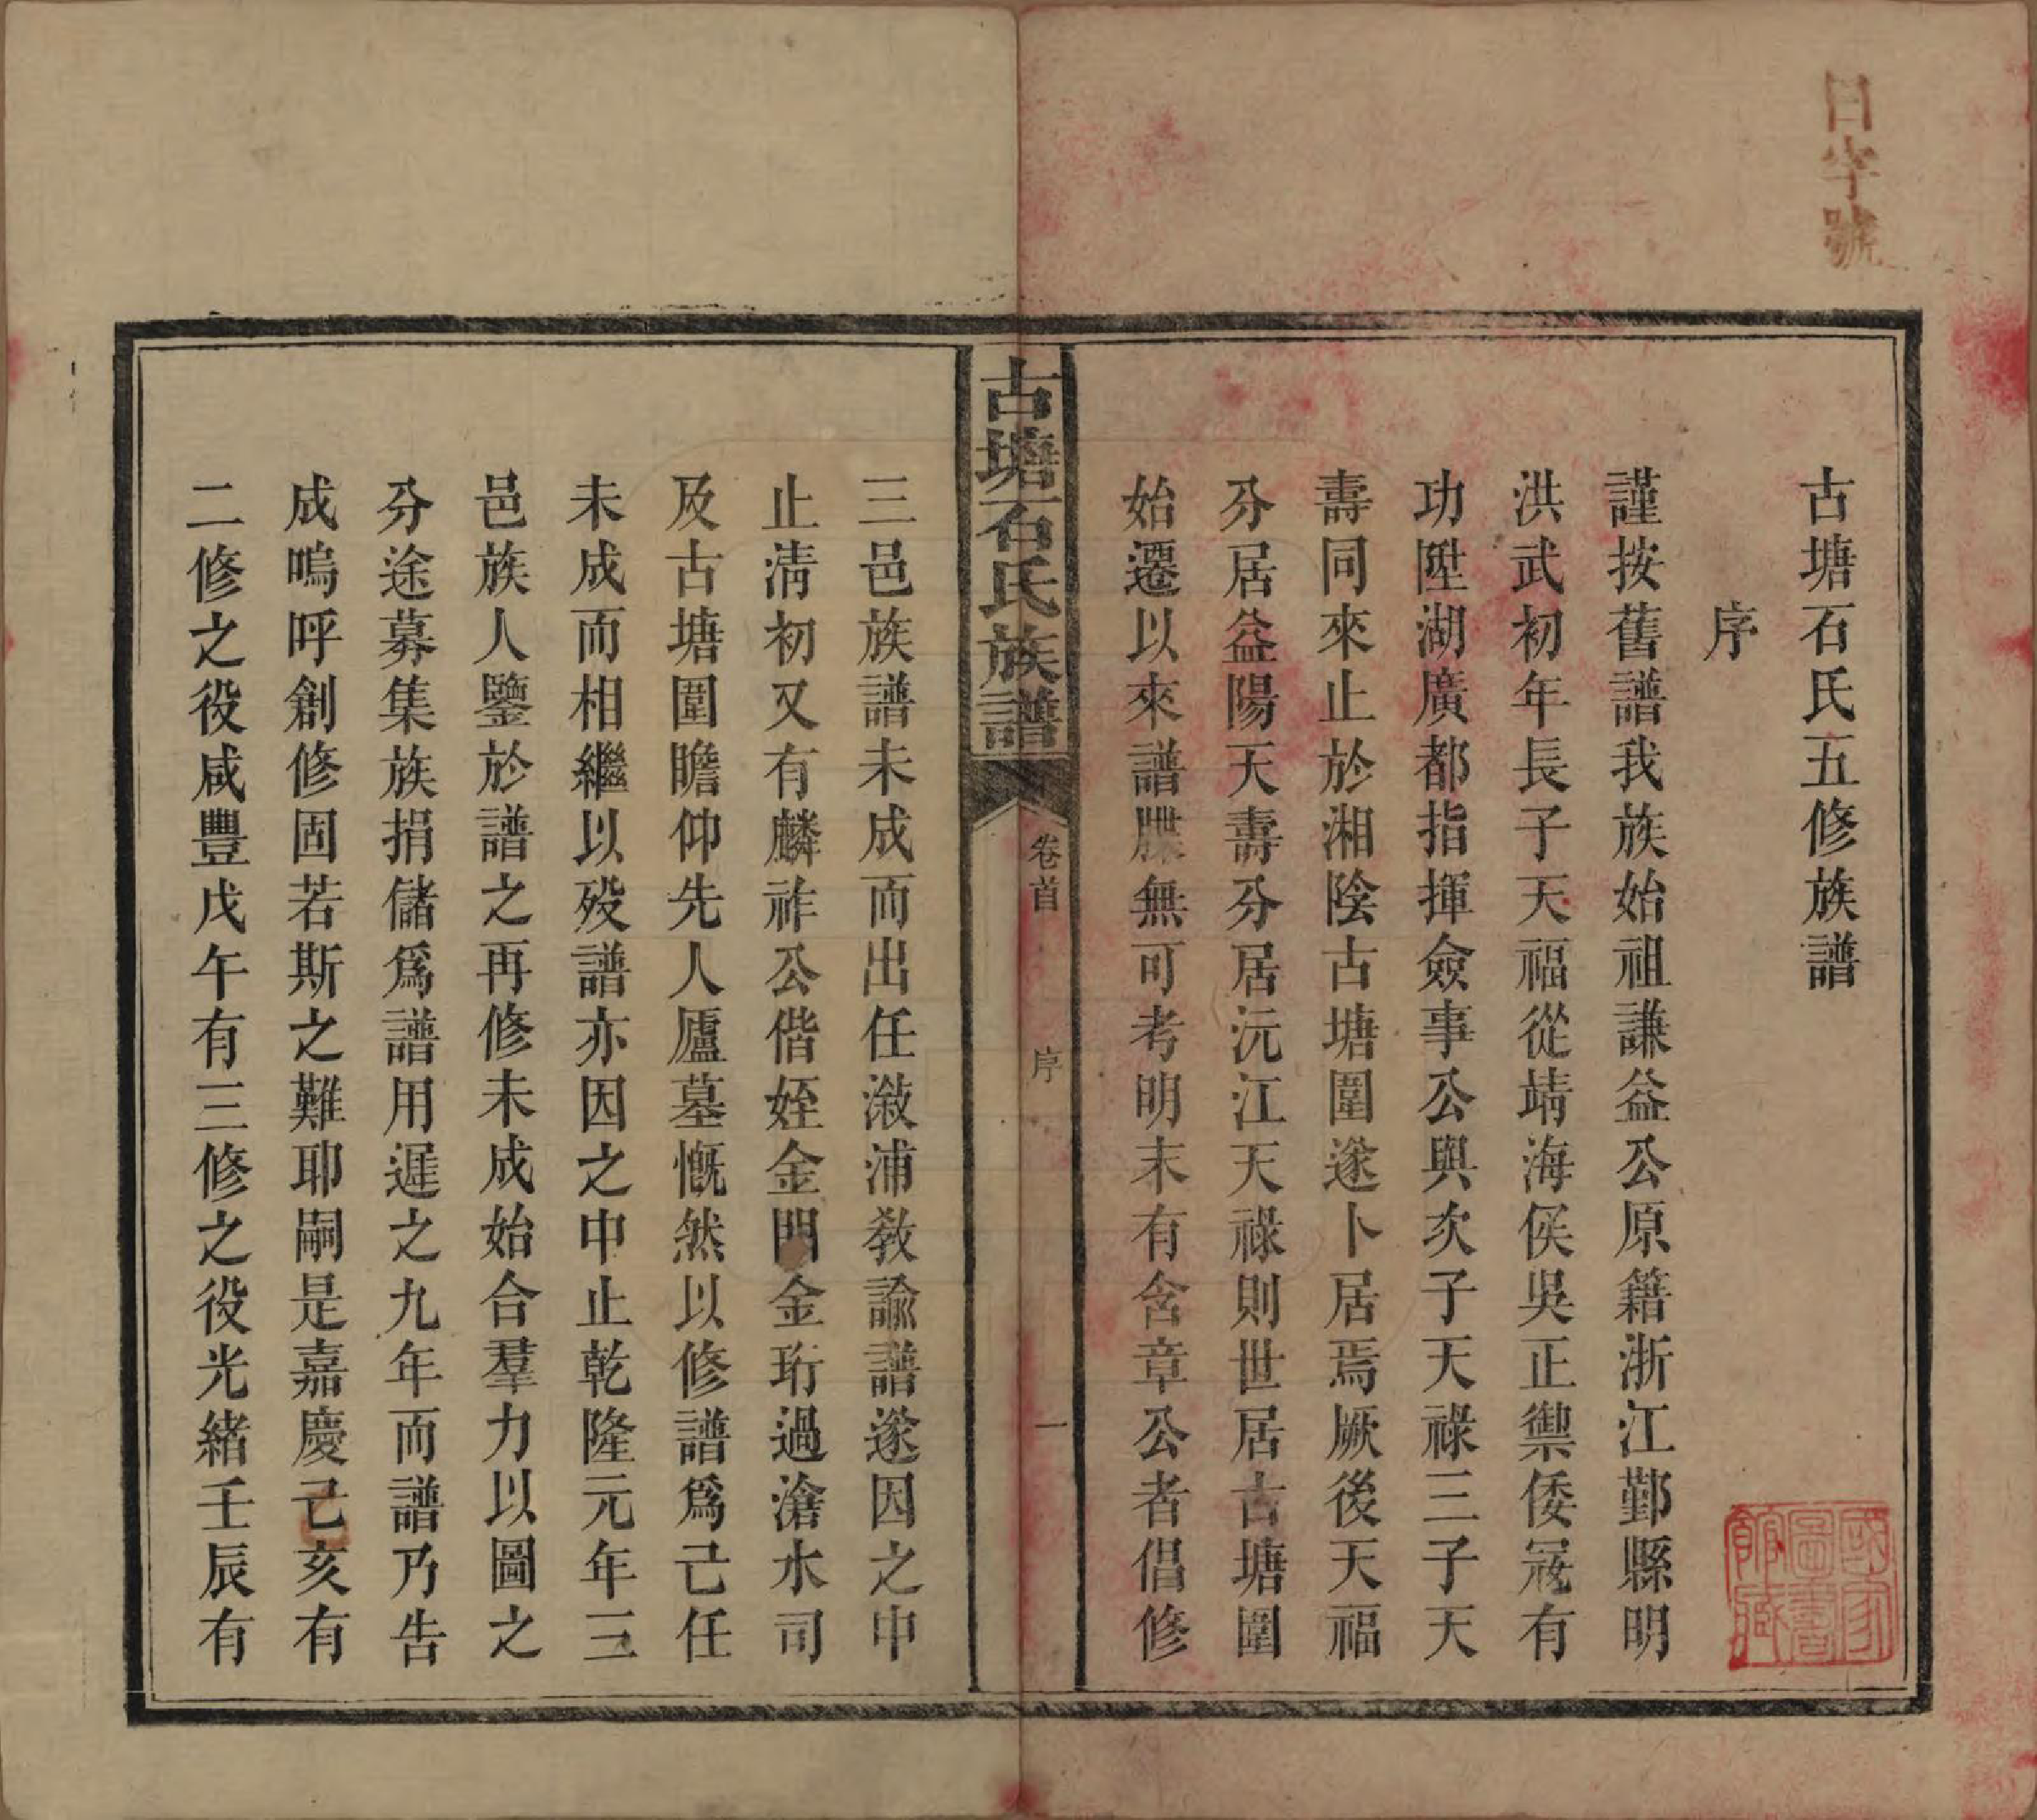 日字號
古塘石氏五修族譜
序
謹按舊譜我族始祖謙益公原籍浙江鄞縣明
洪武初年長子天福從靖海侯吳正禦倭寇有
功陞湖廣都指揮僉事公與次子天祿三子天
壽同來止於湘陰古塘圍遂卜居焉厥後天福
分居益陽天壽分居沅江天祿則世居古塘圍
始遷以來譜牒無可考明末有含章公者倡修
古塘石氏族譜
卷首
序
一
三邑族譜未成而出任漵浦教諭譜遂因之中
止淸初又有麟祚公偕姪金門金珩過滄水司
及古塘圍瞻仰先人廬墓慨然以修譜爲己任
未成而相繼以歿譜亦因之中止乾隆元年三
邑族人鑒於譜之再修未成始合羣力以圖之
分途募集族捐儲爲譜用遲之九年而譜乃告
成嗚呼創修固若斯之難耶嗣是嘉慶己亥有
二修之役咸豐戊午有三修之役光緒壬辰有
國家
圖書
館藏